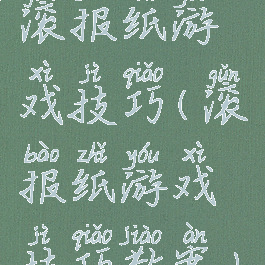 滚报纸游
xì jì qiǎo gǔn
戏技巧(滚
bào zhǐ yóu xì
报纸游戏
jì qiǎo jiào àn
技巧教案)